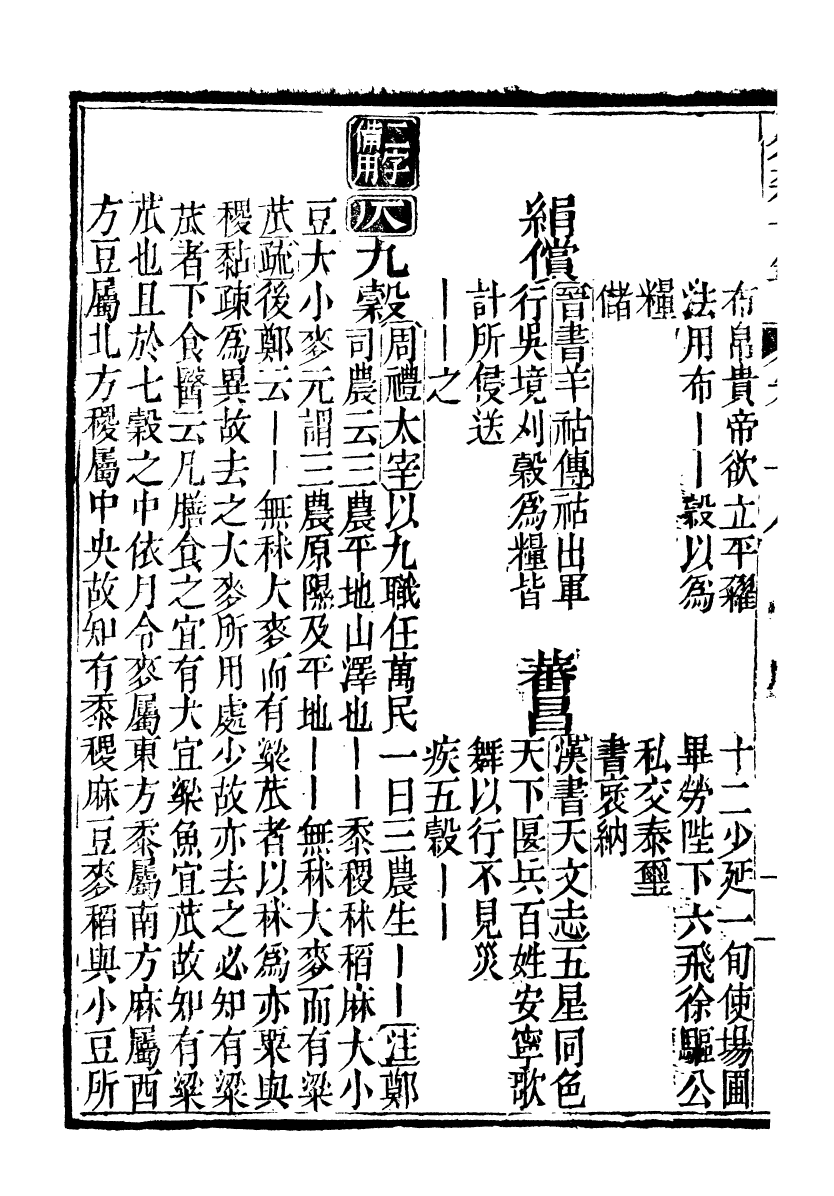 布帛貴帝欲立平糴
法用布｜｜穀以爲
糧
儲
十二少延一旬使場圃
畢勞陛下六飛徐驅公
私交泰璽
書褒納
絹償
晉書羊祜傳祜出軍
行吳境刈穀爲糧皆
計所侵送
｜｜之
蕃昌
漢書天文志五星同色
天下偃兵百姓安寧歌
舞以行不見災
疾五穀｜｜
二字備用
八
九穀
周禮太宰以九職任萬民一曰三農生｜｜注鄭
司農云三農平地山澤也｜｜黍稷秫稻麻大小
豆大小麥元謂三農原隰及平地｜｜無秫大麥而有粱
苽疏後鄭云｜｜無秫大麥而有粱苽者以秫爲亦粟與
稷黏疎爲異故去之大麥所用處少故亦去之必知有粱
苽者下食醫云凡膳食之宜有犬宜粱魚宜苽故知有粱
苽也且於七穀之中依月令麥屬東方黍屬南方麻屬西
方豆屬北方稷屬中央故知有黍稷麻豆麥稻與小豆所